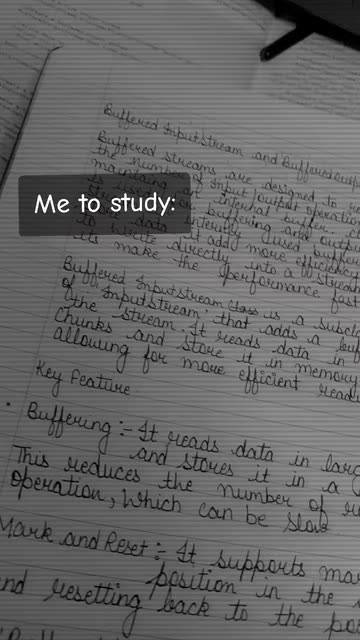 Buffered InputStream and Buffered
Buffered streams are designed to
the number of input/output operation
maintaing an internal buffer.
Me to study:
buffering and
data it add more efficiency
to write directly into a stream
its make the performance fast
Buffered InputStream class is a subcl
of InputStream, that adds a buf
the stream. It reads data in
chunks and store it in memory
allowing for more efficient read
Key Feature
Buffering :- It reads data in larg
and stores it in a
This reduces the number of
operation, which can be slow
Mark and Reset :- It supports mar
position in the
and resetting back to the po